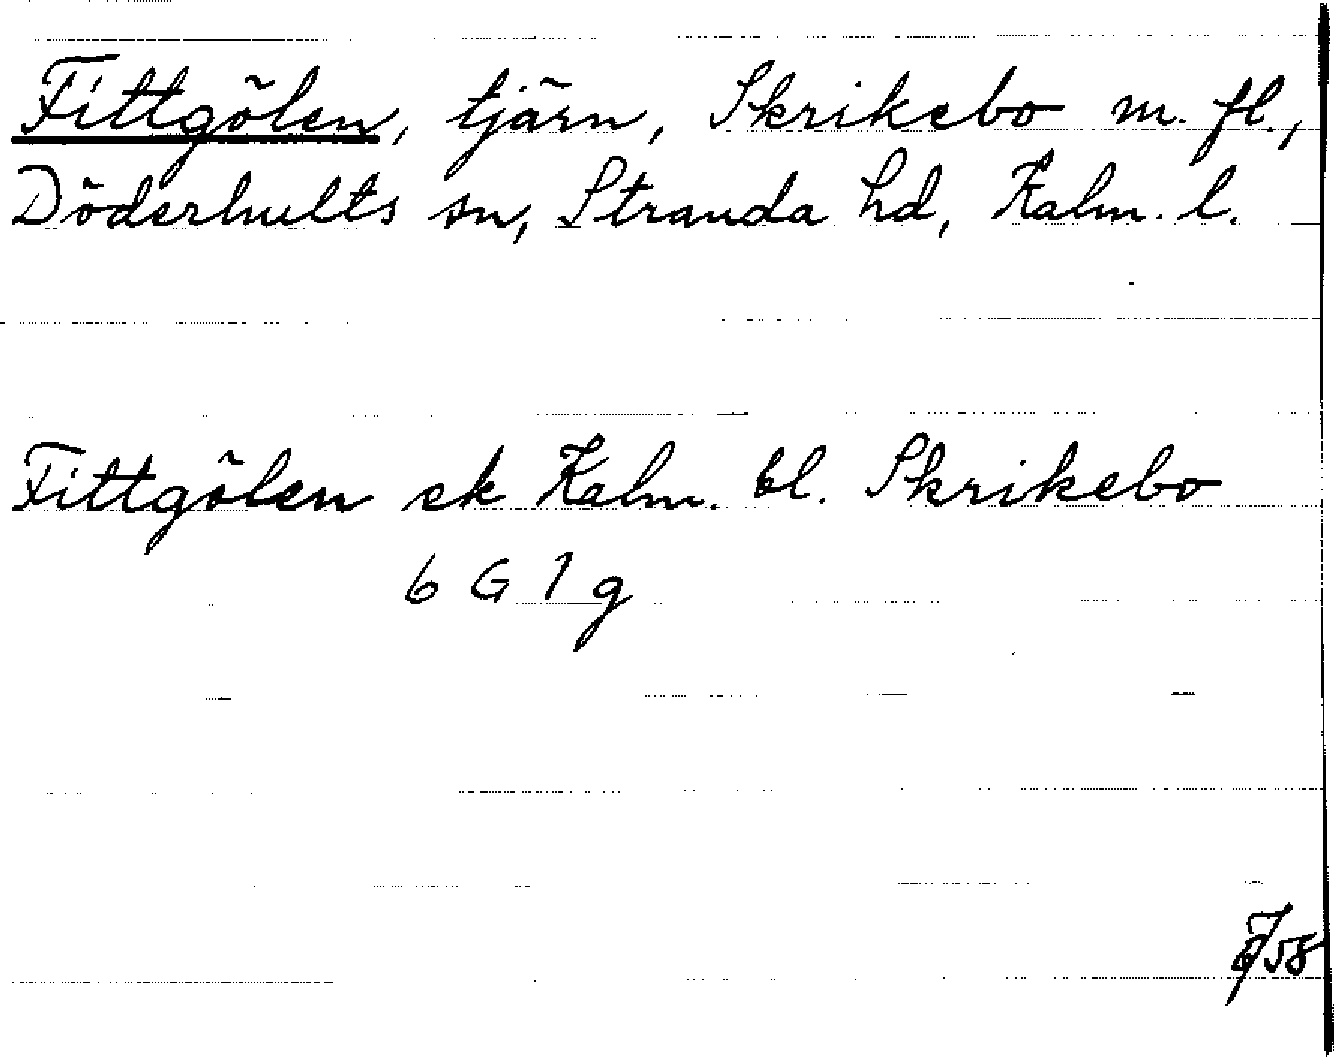 Fittgölen, tjärn, Skrikebo m. fl.,
Döderhults sn, Stranda hd, Kalm. l.
Fittgölen ek Kalm. bl. Skrikebo
6 G 1 g